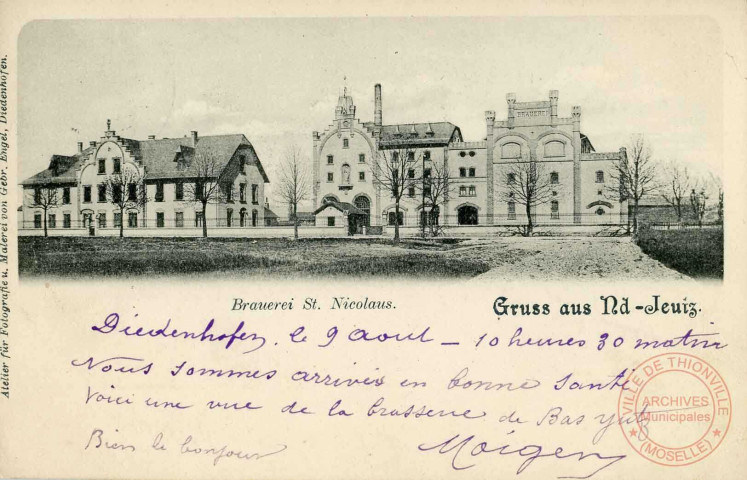 BRAUEREI
Atelier für Fotografie u. Malerei von Gebr. Engel, Diedenhofen.
Brauerei St. Nicolaus.
Gruss aus Nd-Jeutz.
Diedenhofen, le 9 aout - 10 heures 30 matin
Nous sommes arrivés en bonne santé
Voici une vue de la brasserie de Bas Yutz
Bien le bonjour
VILLE DE THIONVILLE
ARCHIVES
Municipales
(MOSELLE)